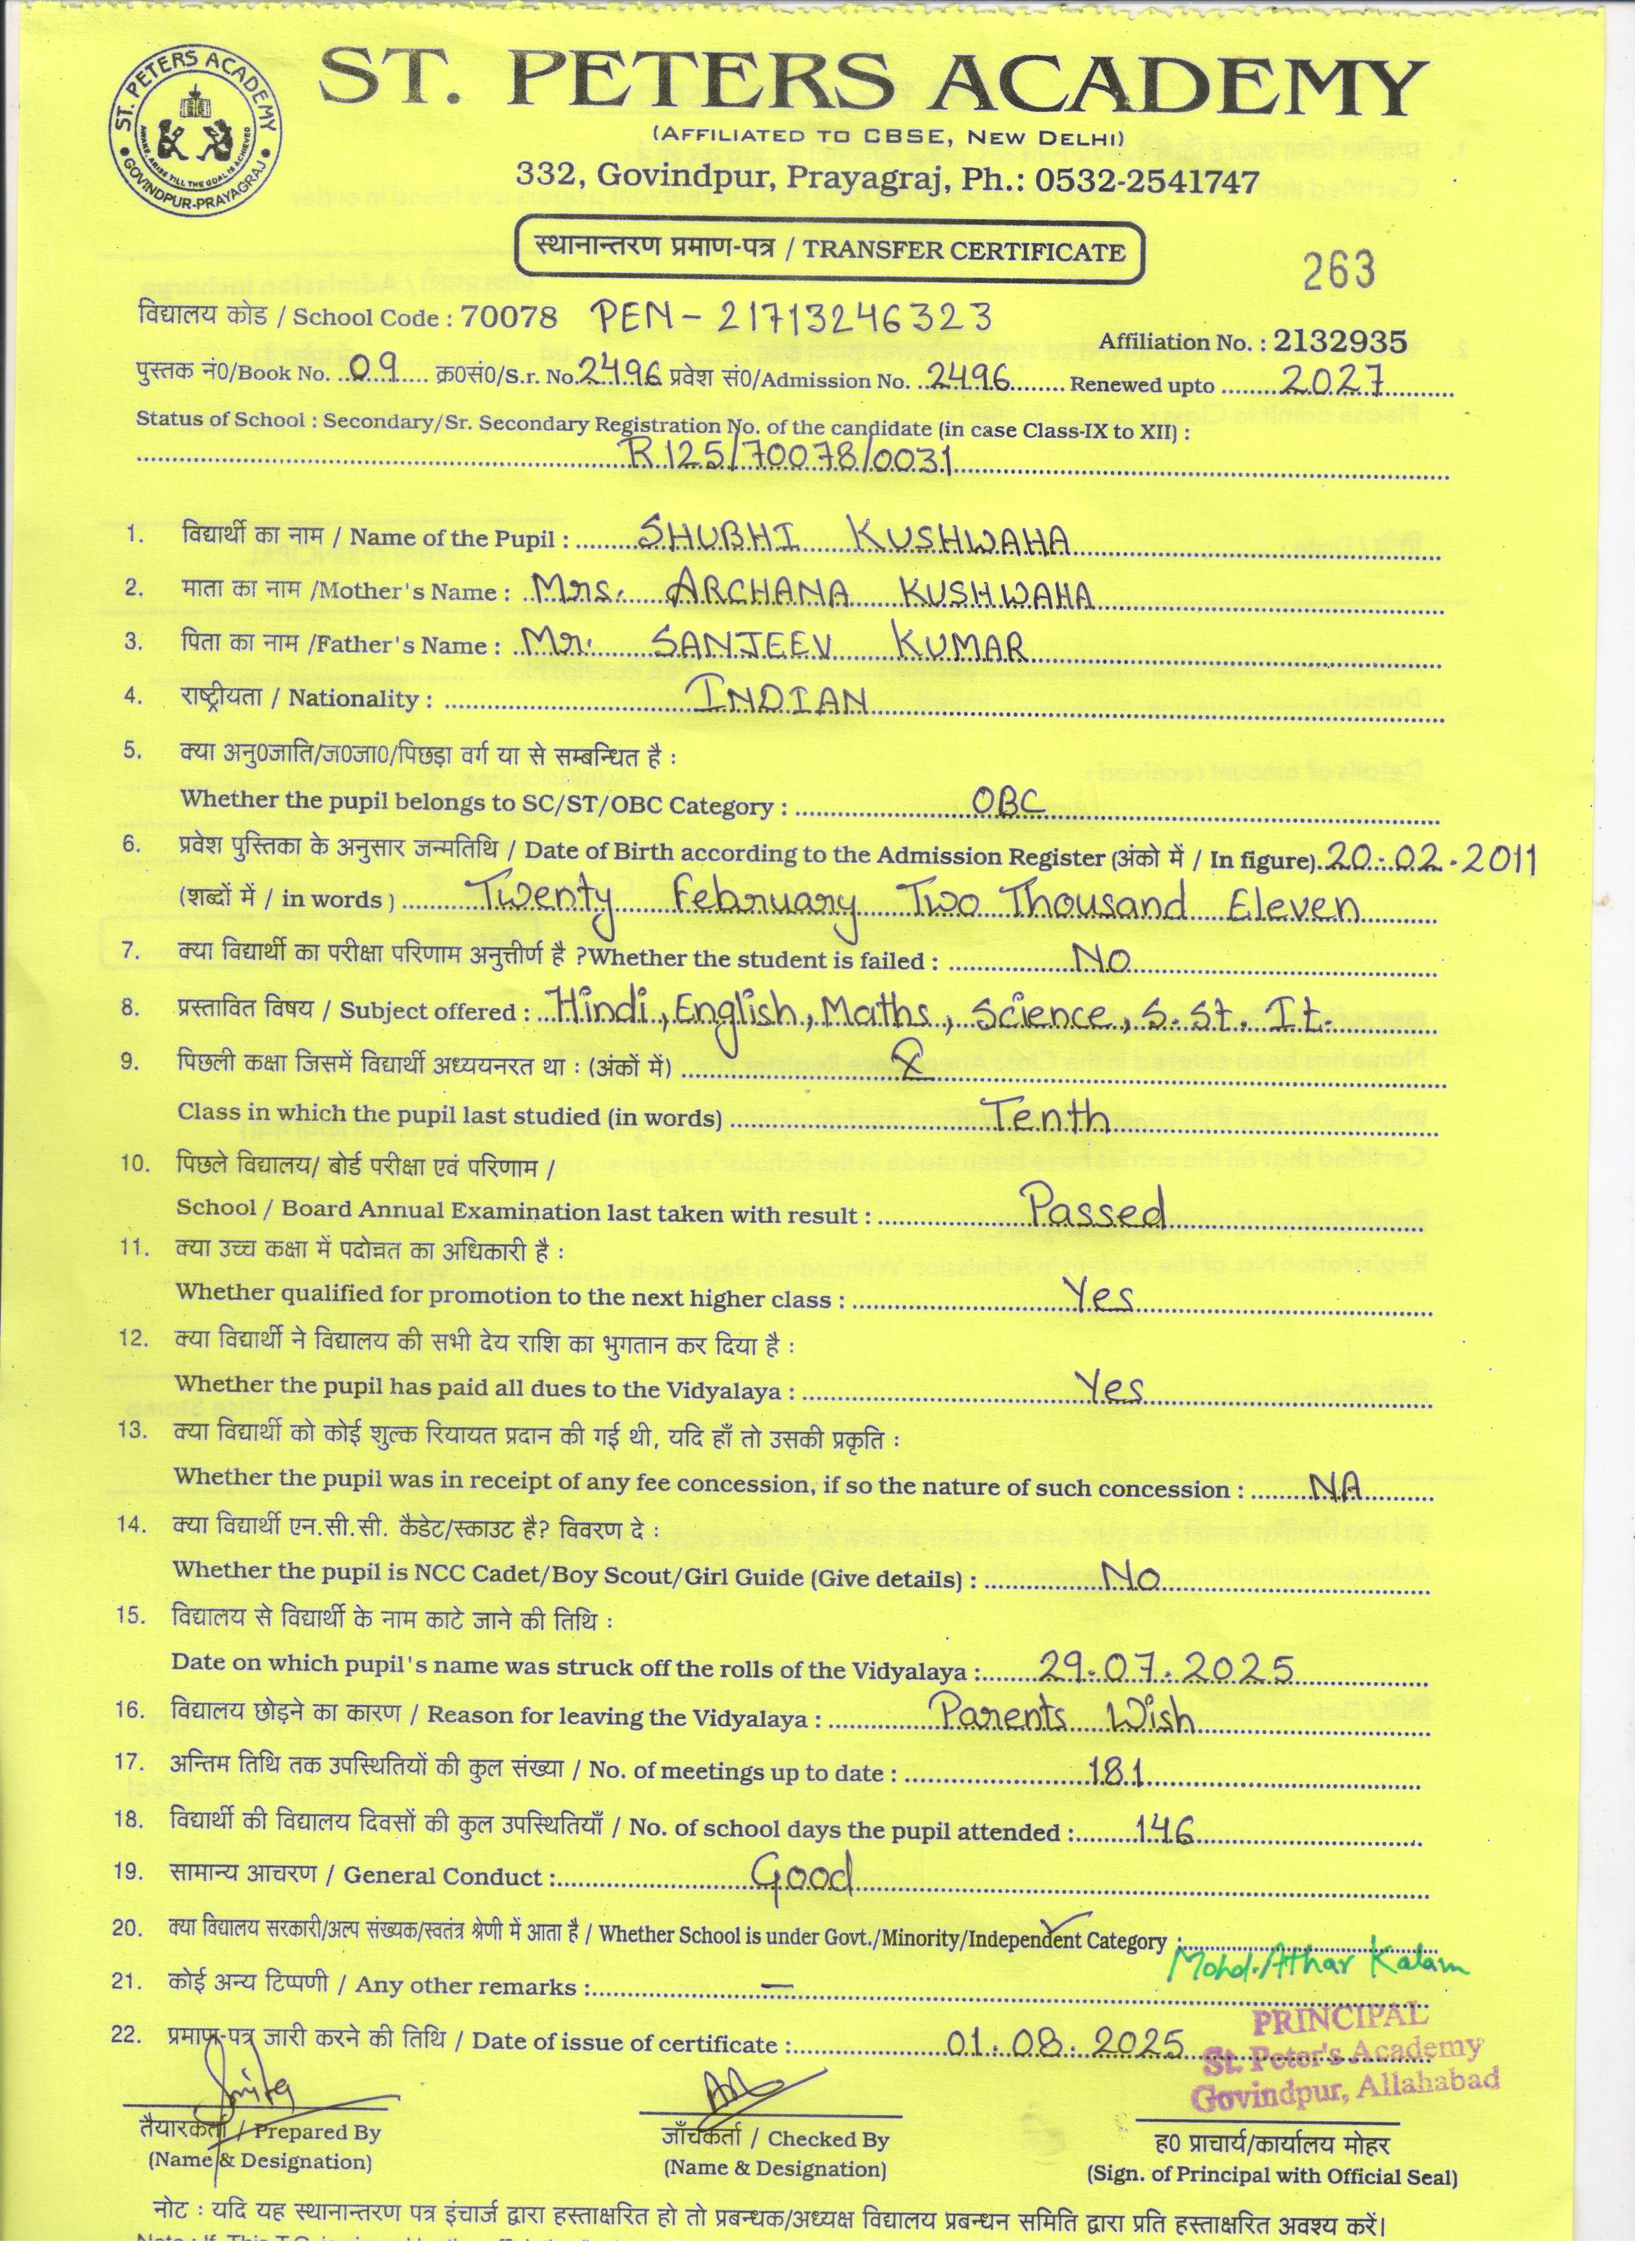 ST. PETERS ACADEMY
GOVINDPUR-PRAYAGRAJ
AWAKE, ARISE TILL THE GOAL IS ACHIEVED
ST. PETERS ACADEMY
(AFFILIATED TO CBSE, NEW DELHI)
332, Govindpur, Prayagraj, Ph.: 0532-2541747
स्थानान्तरण प्रमाण-पत्र / TRANSFER CERTIFICATE
263
विद्यालय कोड / School Code : 70078 PEN - 21713246323
Affiliation No. : 2132935
पुस्तक नं0/Book No. 09 क्र0सं0/S.r. No. 2496 प्रवेश सं0/Admission No. 2496 Renewed upto 2027
Status of School : Secondary/Sr. Secondary Registration No. of the candidate (in case Class-IX to XII) :
R125/70078/0031
1. विद्यार्थी का नाम / Name of the Pupil : SHUBHI KUSHWAHA
2. माता का नाम /Mother's Name : Mrs. ARCHANA KUSHWAHA
3. पिता का नाम /Father's Name : Mr. SANJEEV KUMAR
4. राष्ट्रीयता / Nationality : INDIAN
5. क्या अनु0जाति/ज0जा0/पिछड़ा वर्ग या से सम्बन्धित है :
Whether the pupil belongs to SC/ST/OBC Category : OBC
6. प्रवेश पुस्तिका के अनुसार जन्मतिथि / Date of Birth according to the Admission Register (अंको में / In figure) 20.02.2011
(शब्दों में / in words ) Twenty February Two Thousand Eleven
7. क्या विद्यार्थी का परीक्षा परिणाम अनुत्तीर्ण है ?Whether the student is failed : NO
8. प्रस्तावित विषय / Subject offered : Hindi, English, Maths, Science, S.St. It.
9. पिछली कक्षा जिसमें विद्यार्थी अध्ययनरत था : (अंकों में) X
Class in which the pupil last studied (in words) Tenth
10. पिछले विद्यालय/ बोर्ड परीक्षा एवं परिणाम /
School / Board Annual Examination last taken with result : Passed
11. क्या उच्च कक्षा में पदोन्नत का अधिकारी है :
Whether qualified for promotion to the next higher class : Yes
12. क्या विद्यार्थी ने विद्यालय की सभी देय राशि का भुगतान कर दिया है :
Whether the pupil has paid all dues to the Vidyalaya : Yes
13. क्या विद्यार्थी को कोई शुल्क रियायत प्रदान की गई थी, यदि हाँ तो उसकी प्रकृति :
Whether the pupil was in receipt of any fee concession, if so the nature of such concession : NA
14. क्या विद्यार्थी एन.सी.सी. कैडेट/स्काउट है? विवरण दे :
Whether the pupil is NCC Cadet/Boy Scout/Girl Guide (Give details) : No
15. विद्यालय से विद्यार्थी के नाम काटे जाने की तिथि :
Date on which pupil's name was struck off the rolls of the Vidyalaya : 29.07.2025
16. विद्यालय छोड़ने का कारण / Reason for leaving the Vidyalaya : Parents Wish
17. अन्तिम तिथि तक उपस्थितियों की कुल संख्या / No. of meetings up to date : 181
18. विद्यार्थी की विद्यालय दिवसों की कुल उपस्थितियाँ / No. of school days the pupil attended : 146
19. सामान्य आचरण / General Conduct : Good
20. क्या विद्यालय सरकारी/अल्प संख्यक/स्वतंत्र श्रेणी में आता है / Whether School is under Govt./Minority/Independent Category :
Mohd. Athar Kalam
21. कोई अन्य टिप्पणी / Any other remarks : —
PRINCIPAL
22. प्रमाण-पत्र जारी करने की तिथि / Date of issue of certificate : 01.08.2025
St. Peter's Academy
Govindpur, Allahabad
तैयारकर्ता / Prepared By
(Name & Designation)
जाँचकर्ता / Checked By
(Name & Designation)
ह0 प्राचार्य/कार्यालय मोहर
(Sign. of Principal with Official Seal)
नोट : यदि यह स्थानान्तरण पत्र इंचार्ज द्वारा हस्ताक्षरित हो तो प्रबन्धक/अध्यक्ष विद्यालय प्रबन्धन समिति द्वारा प्रति हस्ताक्षरित अवश्य करें।